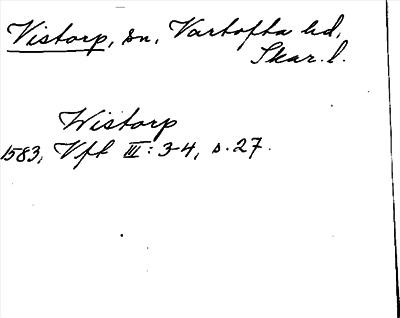 Vistorp, sn, Vartofta hd,
Skar. l.
Wistorp
1583, Vft III: 3-4, s. 27.